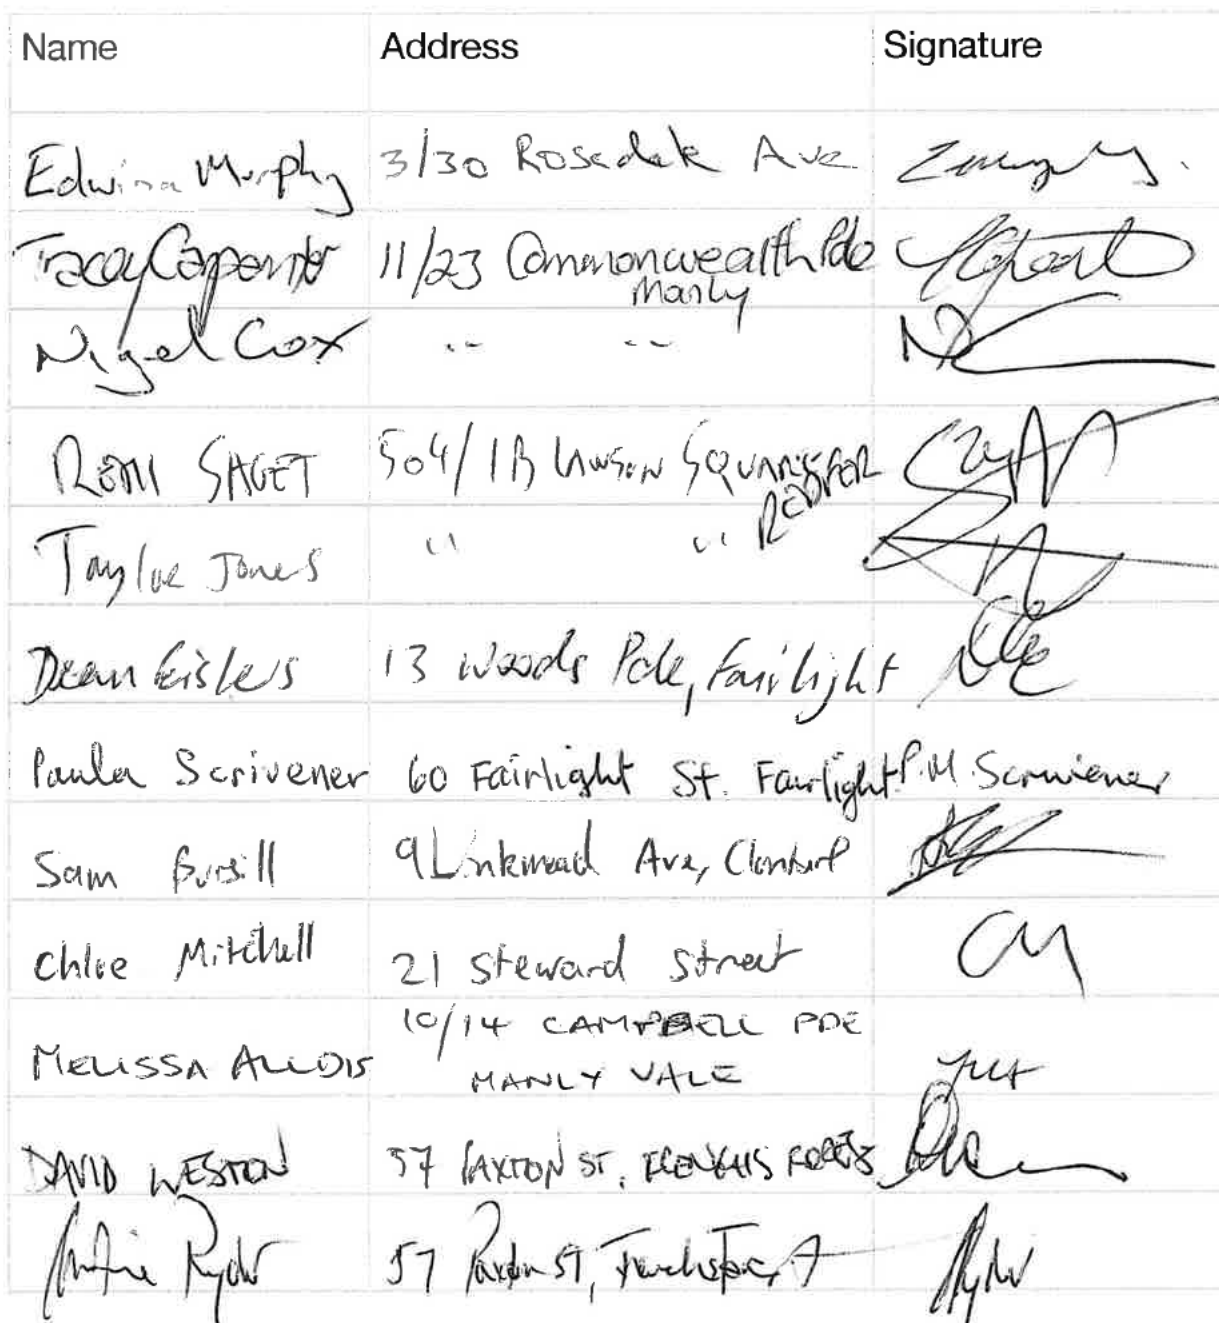 Name Address Signature
Edwina Murphy 3/30 Rosedale Ave
Tracey Carpenter 11/23 Commonwealth Pde
Manly
Nigel Cox " "
REMI SAGET 504/1B LAWSON SQUARE
REDFER
Taylor Jones " "
Dean Eislers 13 Woods Pde, Fairlight
Paula Scrivener 60 Fairlight St. Fairlight. P.M. Scrivener
Sam Bursill 9 Linkmead Ave, Clontarf
Chloe Mitchell 21 Steward Street CM
10/14 CAMPBELL PDE
MELISSA ALLOIS
MANLY VALE
DAVID WESTON 57 PAXTON ST, FRENCHS FOREST
Ryder 57 Paxton ST, Frenchs Forest